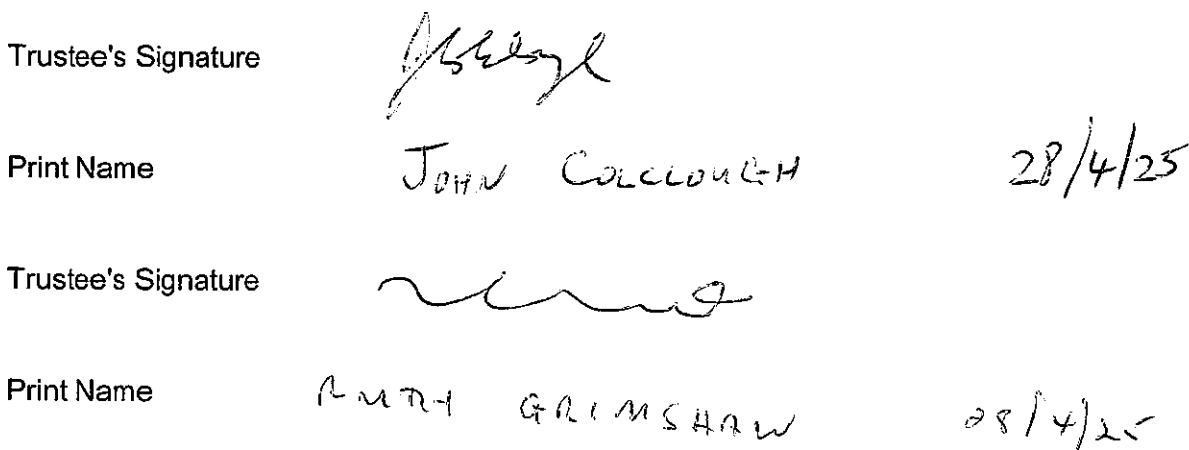 Trustee's Signature
Print Name JOHN COLCLOUGH 28/4/25
Trustee's Signature
Print Name RUTH GRIMSHAW 28/4/25